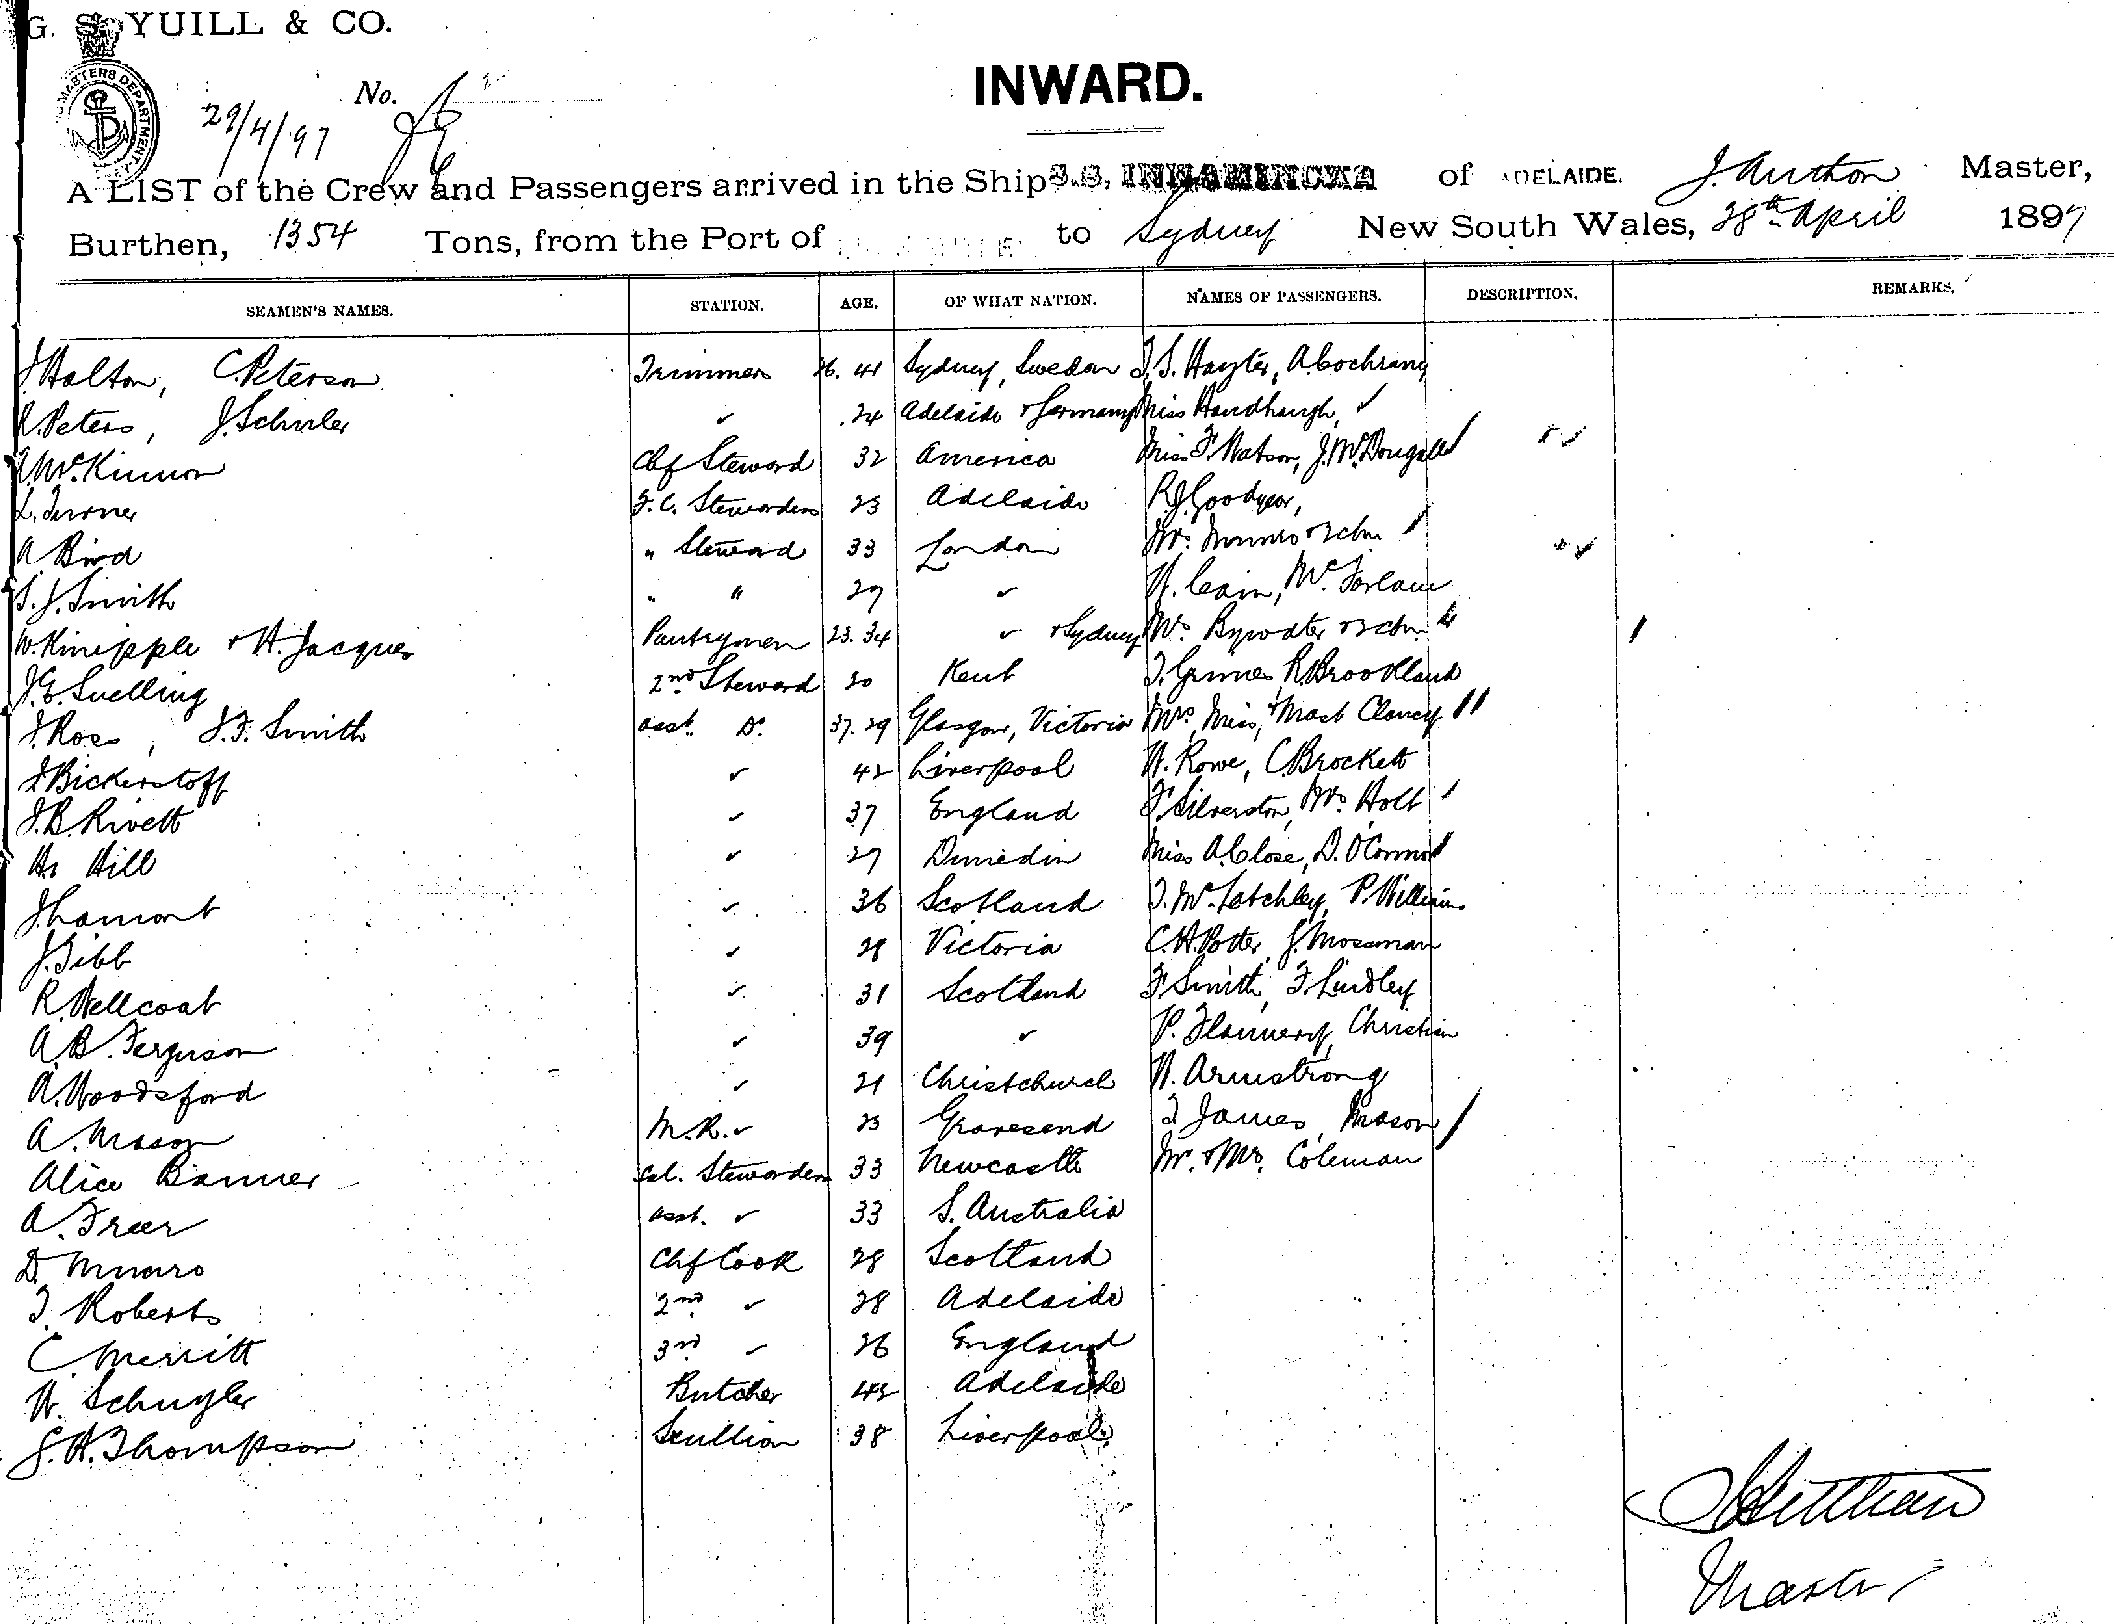 G. S. YUILL & CO.
MASTERS DEPARTMENT
29/4/97 No.
INWARD.
A LIST of the Crew and Passengers arrived in the Ship S.S. INNAMINCKA of ADELAIDE. Master,
Burthen, 1354 Tons, from the Port of to Sydney New South Wales, 28th April 1897
SEAMEN'S NAMES. STATION. AGE. OF WHAT NATION. NAMES OF PASSENGERS. DESCRIPTION. REMARKS.
J Halton, C. Peterson Trimmers 26. 41 Sydney, Sweden J. S. Hayter, A. Cochrane
R. Peters, J. Schuler " 24 Adelaide & Germany Miss Handhaugh,
McKinnon Chf Steward 32 America Miss F. Watson, J. McDougall
L. Turner F.C. Stewardess 23 Adelaide R.J. Goodyear,
A. Bird " Steward 33 London Mrs. Munro & 2 chn
S. J. Smith " " 29 " W. Cain, McForlane
W. Knipple & H. Jacques Pantrymen 23. 34 " & Sydney Mrs. Bywater & 2 chn
J. E. Snelling 2nd Steward 20 Kent T. Grimes, R. Brookland
J. Ross, J. F. Smith asst. Do. 37. 29 Glasgow, Victoria Mrs, Miss, & Mast Clancy
J Bickerstaff " 42 Liverpool W. Rowe, C. Brockett
J. B. Rivett " 37 England F. Silverston, Mrs. Holt
H. Hill " 27 Dunedin Miss A. Close, D. O'Connor
J. Lamont " 36 Scotland T. McLatchley, P. Williams
J. Gibb " 28 Victoria C. H. Potter, J. Mossman
R. Wellcoat " 31 Scotland F. Smith, F. Lindley
A. B. Ferguson " 39 " P. Flannery, Christian
A. Woodsford " 21 Christchurch W. Armstrong
A. Mason M.R. " 23 Gravesend T James, Mason
Alice Banner Sal. Stewardess 33 Newcastle Mr. & Mrs. Coleman
A. Freer asst. " 33 S. Australia
D. Munro Chf Cook 28 Scotland
T. Roberts 2nd " 28 Adelaide
C. Merritt 3rd " 26 England
W. Schugler Butcher 42 Adelaide
G. H. Thompson Scullion 38 Liverpool
Master